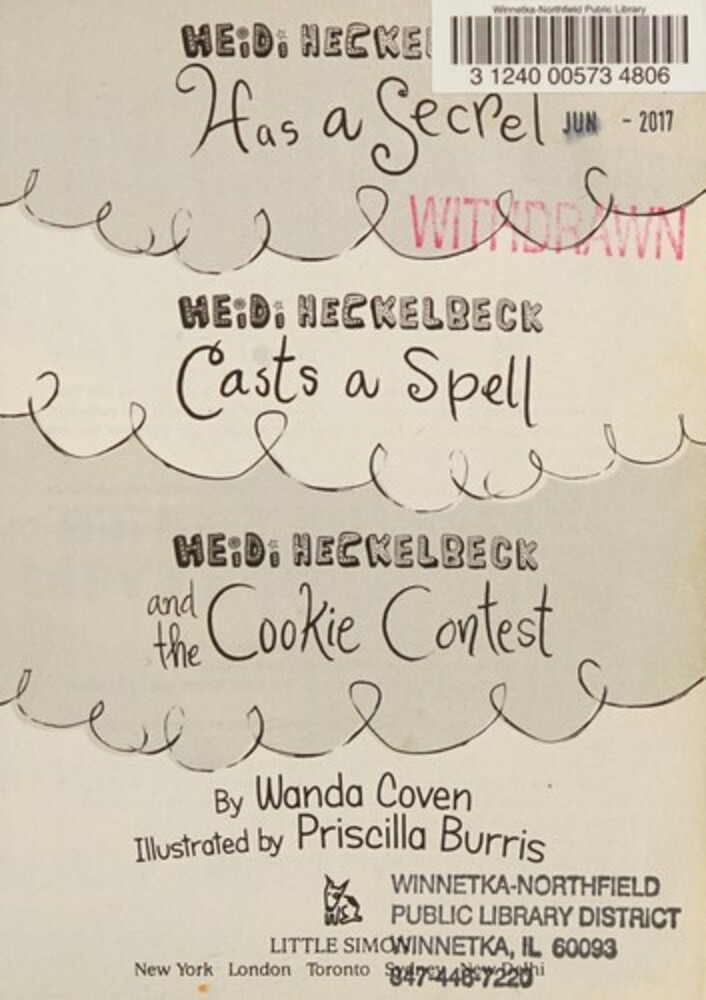 Winnetka-Northfield Public Library
3 1240 00573 4806
HEiDi HECKEL
Has a Secret
JUN - 2017
WITHDRAWN
HEiDi HECKELBECK
Casts a Spell
HEiDi HECKELBECK
and the Cookie Contest
By Wanda Coven
Illustrated by Priscilla Burris
WINNETKA-NORTHFIELD
PUBLIC LIBRARY DISTRICT
LITTLE SIMON
WINNETKA, IL 60093
New York London Toronto Sydney New Delhi
847-446-7220